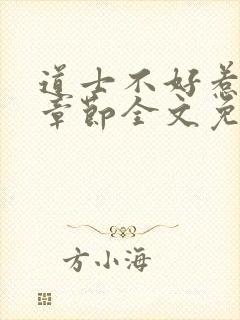 道士不好惹
章节全文免
方小海